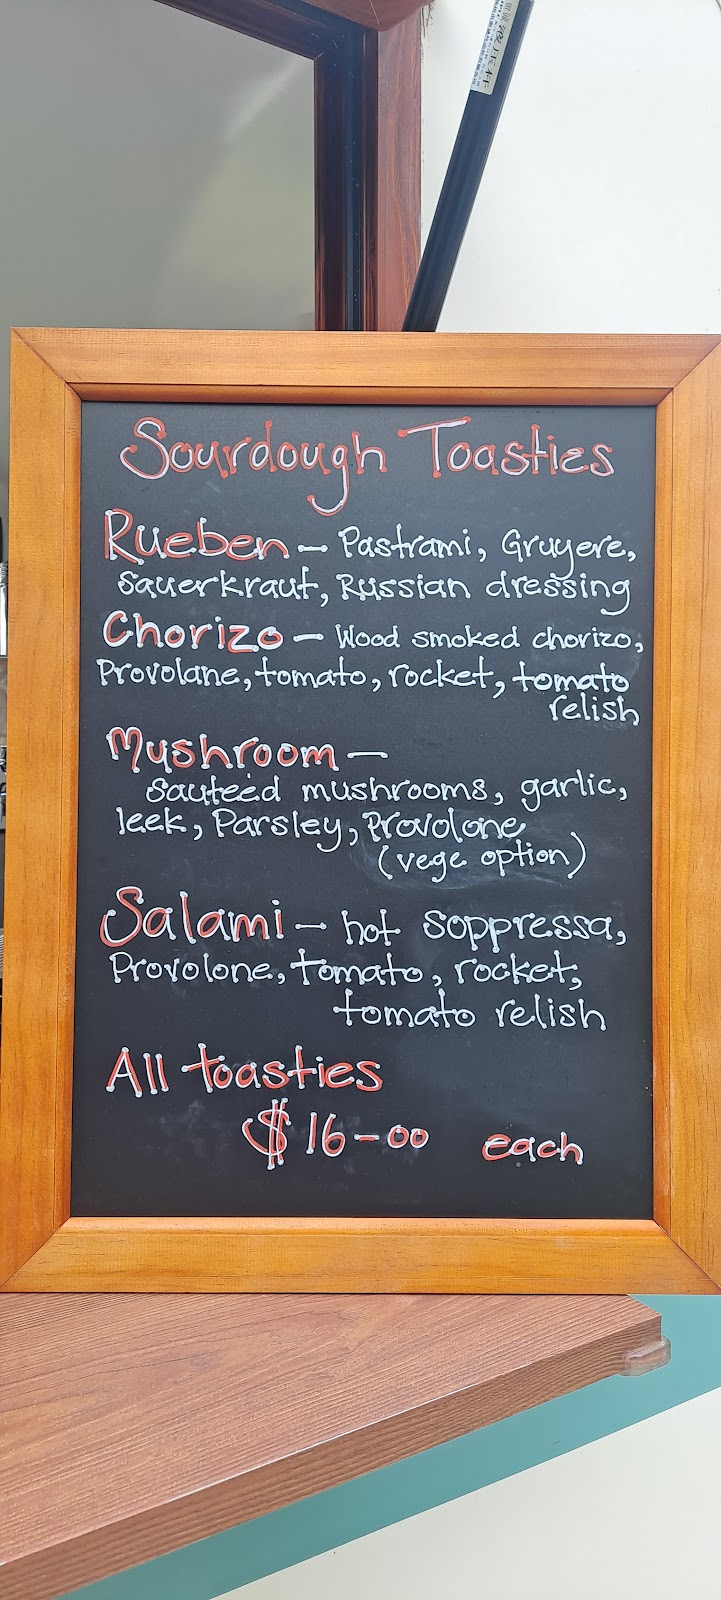 Sourdough Toasties
Rueben - Pastrami, Gruyere,
sauerkraut, Russian dressing
Chorizo - Wood smoked chorizo,
Provolane, tomato, rocket, tomato
relish
Mushroom -
sauteéd mushrooms, garlic,
leek, Parsley, Provolone
(vege option)
Salami - hot soppressa,
Provolone, tomato, rocket,
tomato relish
All toasties
$16-00 each